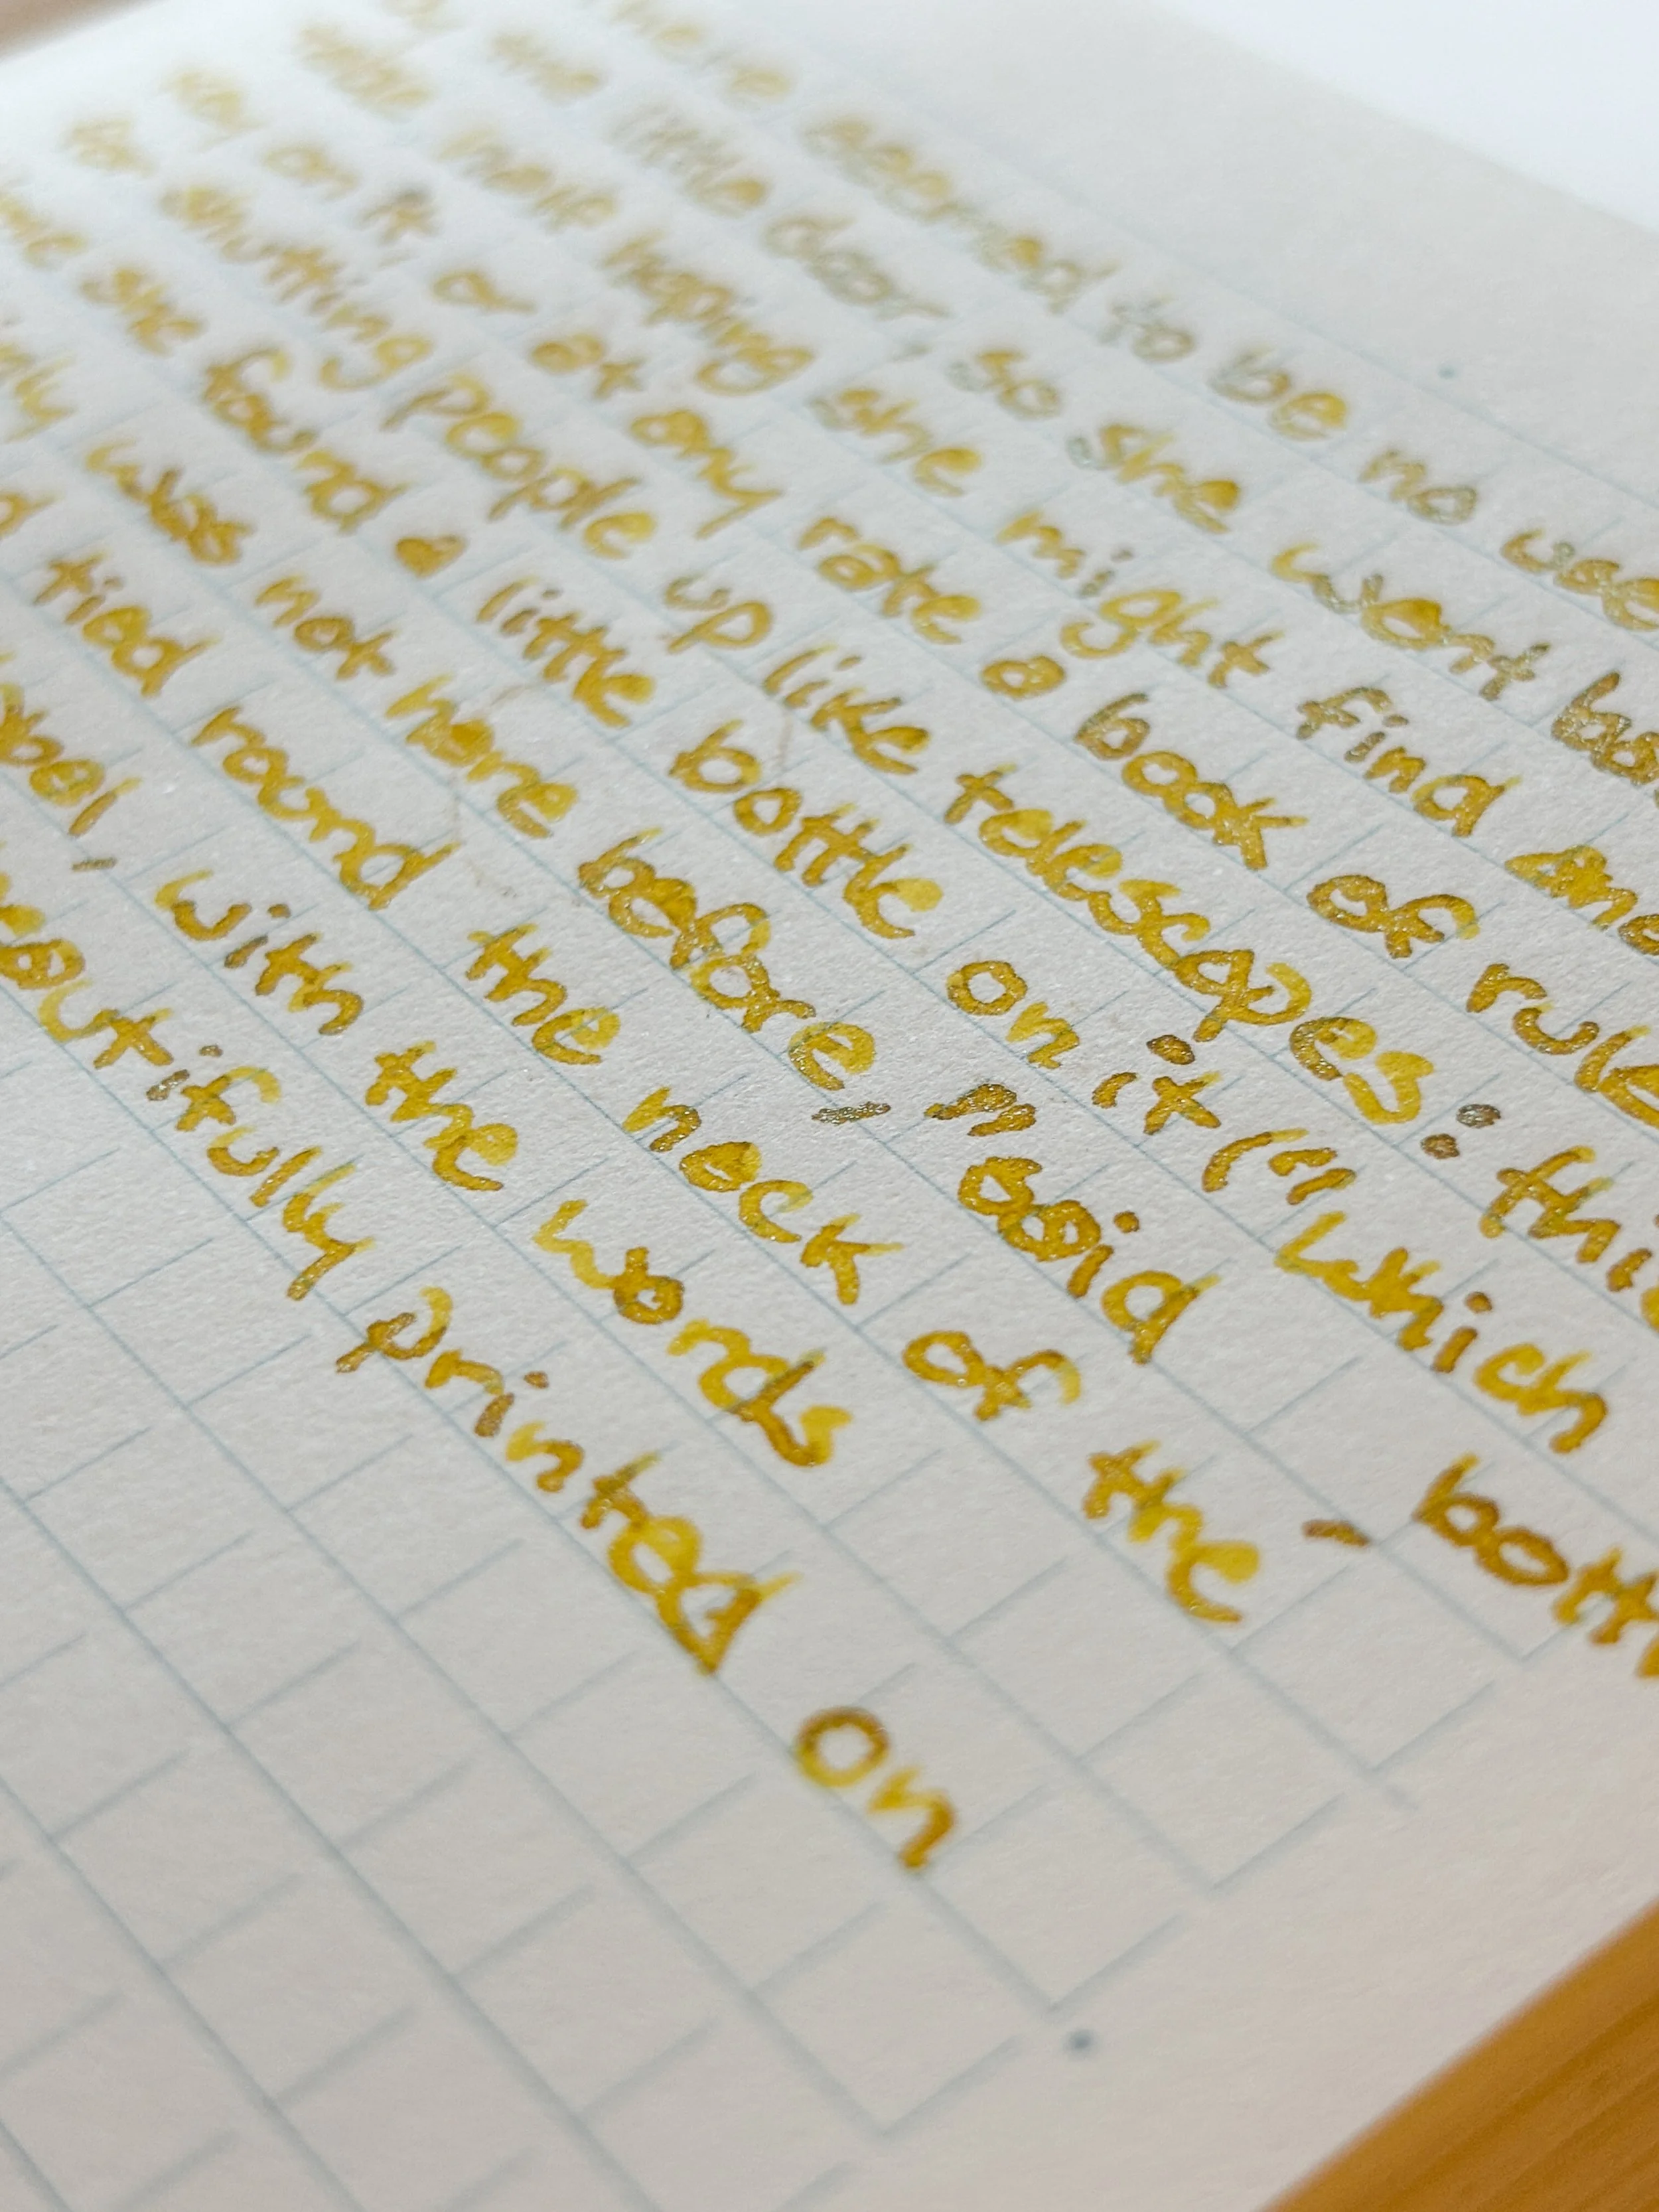 here seemed to be no use
the little door, so she went bac
table half hoping she might find ano
key on it, or at any rate a book of rule
for shutting people up like telescopes: thi
me she found a little bottle on it ("which
nly was not here before," said - bott
d tied round the neck of the
abel, with the words
eautifully printed on